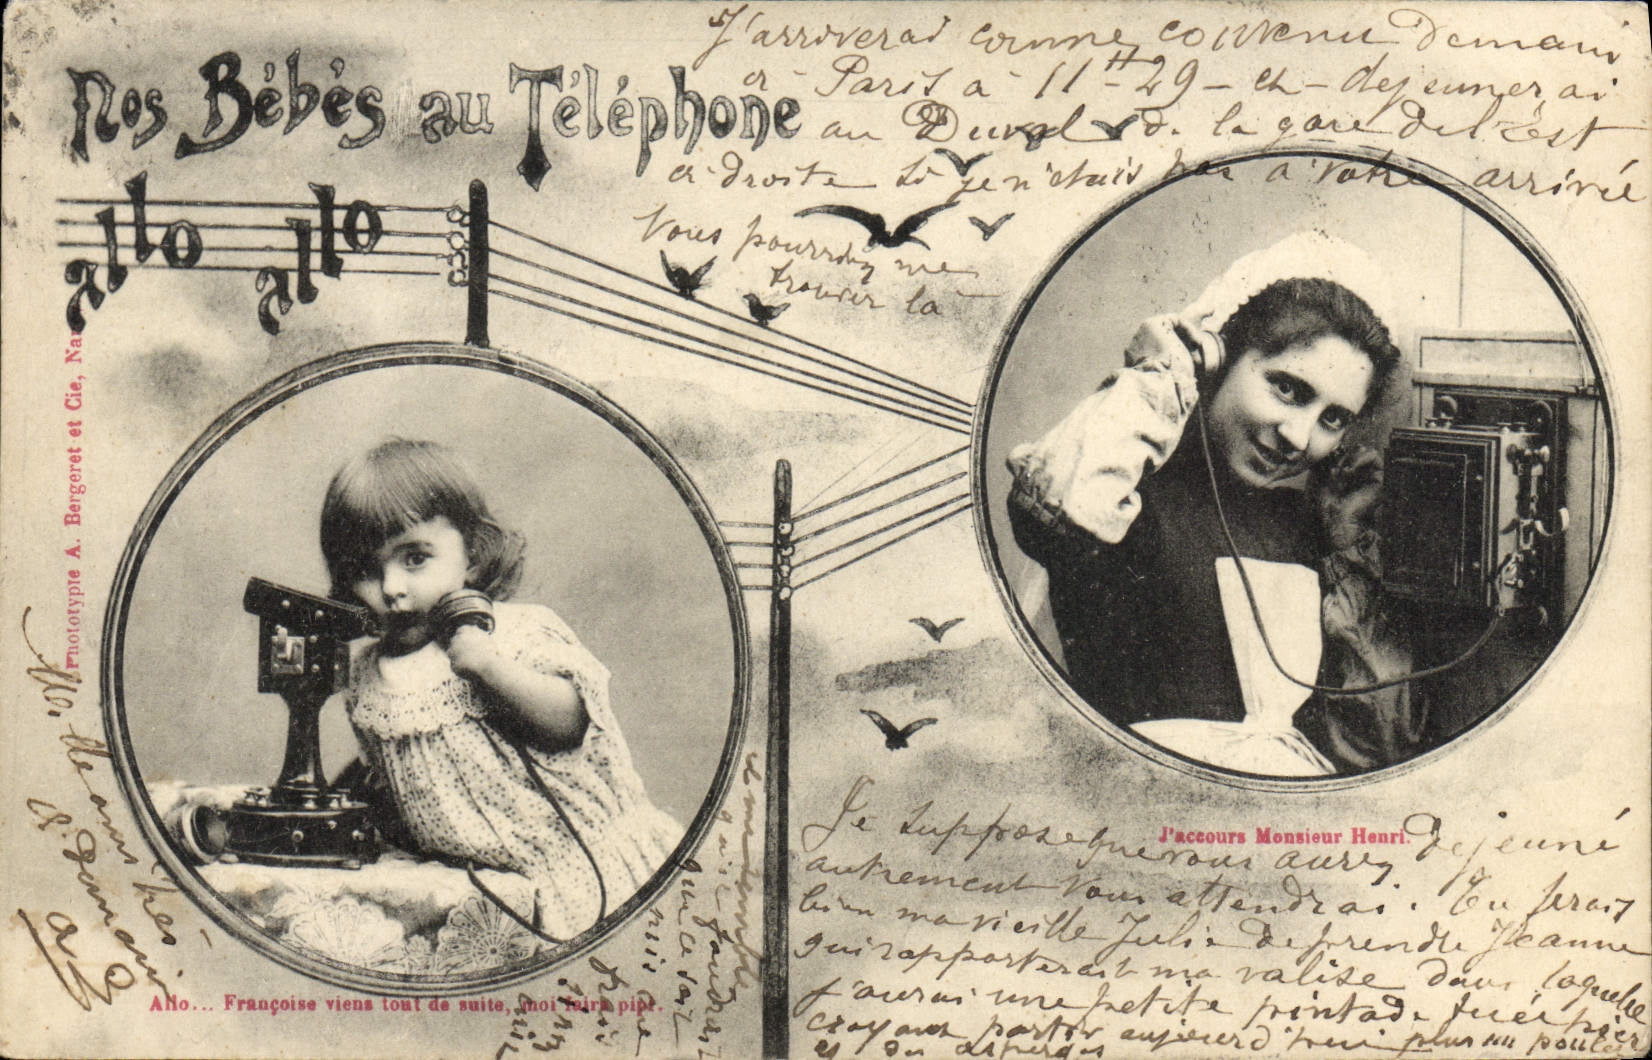 Nos Bébés au Téléphone
allo allo
J'arriverai comme convenu demain
à Paris à 11H-29 - et déjeunerai
au Duval de la gare de l'Est
à droite si je n'étais pas à votre arrivée
Vous pourrez me
trouver là
Phototypie A. Bergeret et Cie, Nan
Allo... Françoise viens tout de suite, moi faire pipi.
J'accours Monsieur Henri.
Je suppose que vous aurez déjeuné
autrement vous attendrai. Tu ferais
bien ma vieille Julie de prendre Jeanne
qui rapporterait ma valise dans laquelle
j'aurai une petite pintade tuée hier
croyant partir aujourd'hui plus un poulet
et des asperges
à demain